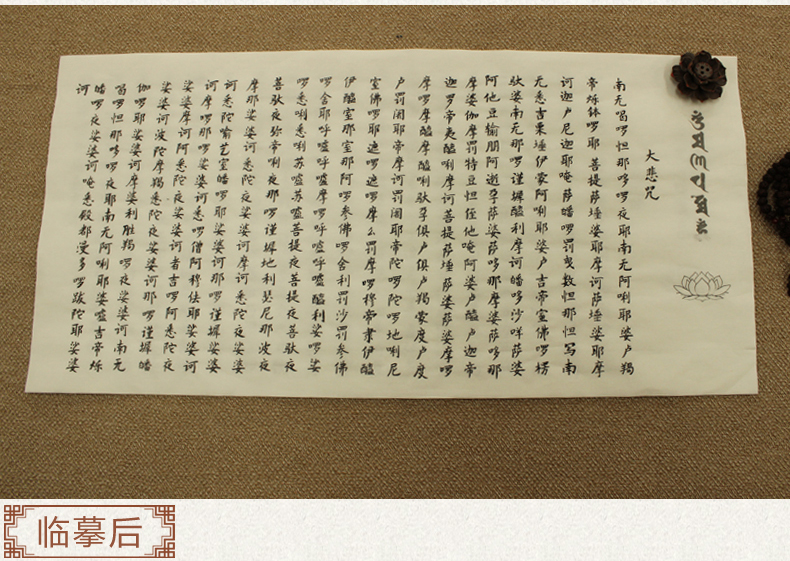 大悲咒
南无喝啰怛那哆啰夜耶南无阿唎耶婆卢羯
帝烁钵啰耶菩提萨埵婆耶摩诃萨埵婆耶摩
诃迦卢尼迦耶唵萨皤啰罚曳数怛那怛写南
无悉吉栗埵伊蒙阿唎耶婆卢吉帝室佛啰楞
驮婆南无那啰谨墀醯利摩诃皤哆沙咩萨婆
阿他豆输朋阿逝孕萨婆萨哆那摩婆萨哆那
摩婆伽摩罚特豆怛侄他唵阿婆卢醯卢迦帝
迦罗帝夷醯唎摩诃菩提萨埵萨婆萨婆摩啰
摩啰摩醯摩醯唎驮孕俱卢俱卢羯蒙度卢度
卢罚阇耶帝摩诃罚阇耶帝陀啰陀啰地唎尼
室佛啰耶遮啰遮啰摩么罚摩啰穆帝隶伊醯
伊醯室那室那阿啰参佛啰舍利罚沙罚参佛
啰舍耶呼嚧呼嚧摩啰呼嚧呼嚧醯利娑啰娑
啰悉唎悉唎苏嚧苏嚧菩提夜菩提夜菩驮夜
菩驮夜弥帝唎夜那啰谨墀地利瑟尼那波夜
摩那娑婆诃悉陀夜娑婆诃摩诃悉陀夜娑婆
诃悉陀喻艺室皤啰耶娑婆诃那啰谨墀娑婆
诃摩啰那啰娑婆诃悉啰僧阿穆佉耶娑婆诃
娑婆摩诃阿悉陀夜娑婆诃者吉啰阿悉陀夜
娑婆诃波陀摩羯悉陀夜娑婆诃那啰谨墀皤
伽啰耶娑婆诃摩婆利胜羯啰夜娑婆诃南无
喝啰怛那哆啰夜耶南无阿唎耶婆嚧吉帝烁
皤啰夜娑婆诃唵悉殿都漫多啰跋陀耶娑婆
诃
临摹后